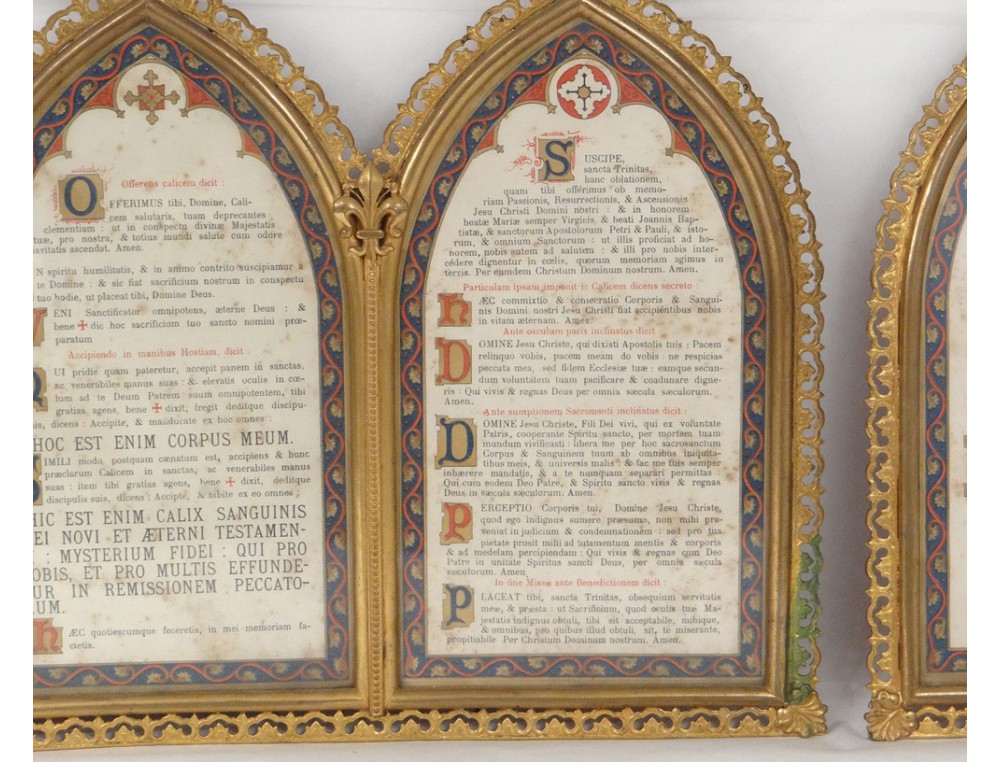 Offerens calicem dicit :
OFFERIMUS tibi, Domine, Cali-
cem salutaris, tuam deprecantes
clementiam : ut in conspectu divinæ Majestatis
tuæ, pro nostra, & totius mundi salute cum odore
suavitatis ascendat. Amen.
IN spiritu humilitatis, & in animo contrito suscipiamur a
te Domine : & sic fiat sacrificium nostrum in conspectu
tuo hodie, ut placeat tibi, Domine Deus.
VENI Sanctificator omnipotens, æterne Deus : &
bene ✠ dic hoc sacrificium tuo sancto nomini præ-
paratum
Accipiendo in manibus Hostiam, dicit :
QUI pridie quam pateretur, accepit panem in sanctas,
ac venerabiles manus suas : & elevatis oculis in cœ-
lum ad te Deum Patrem suum omnipotentem, tibi
gratias agens, bene ✠ dixit, fregit deditque discipu-
lis suis, dicens : Accipite, & manducate ex hoc omnes :
HOC EST ENIM CORPUS MEUM.
SIMILI modo postquam cœnatum est, accipiens & hunc
præclarum Calicem in sanctas, ac venerabiles manus
suas : item tibi gratias agens, bene ✠ dixit, deditque
discipulis suis, dicens : Accipite, & bibite ex eo omnes ;
HIC EST ENIM CALIX SANGUINIS
MEI NOVI ET ÆTERNI TESTAMEN-
: MYSTERIUM FIDEI : QUI PRO
VOBIS, ET PRO MULTIS EFFUNDE-
TUR IN REMISSIONEM PECCATO-
RUM.
HÆC quotiescumque feceretis, in mei memoriam fa-
cietis.
SUSCIPE,
sancta Trinitas,
hanc oblationem,
quam tibi offérimus ob memo-
riam Passionis, Resurrectionis, & Ascensionis
Jesu Christi Domini nostri : & in honorem
beatæ Mariæ semper Virginis, & beati Joannis Bap-
tistæ, & sanctorum Apostolorum Petri & Pauli, & isto-
rum, & omnium Sanctorum : ut illis proficiat ad ho-
norem, nobis autem ad salutem : & illi pro nobis inter-
cédere dignentur in cœlis, quorum memoriam agimus in
terris. Per eumdem Christum Dominum nostrum. Amen.
Particulam ipsam imponit in Calicem dicens secreto :
HÆC commixtio & consecratio Corporis & Sangui-
nis Domini nostri Jesu Christi fiat accipiéntibus nobis
in vitam æternam. Amen.
Ante osculum pacis inclinatus dicit
DOMINE Jesu Christe, qui dixisti Apostolis tuis : Pacem
relinquo vobis, pacem meam do vobis : ne respicias
peccata mea, sed fidem Ecclesiæ tuæ : eamque secun-
dum voluntatem tuam pacificare & coadunare digne-
ris : Qui vivis & regnas Deus per omnia sæcula sæculorum.
Amen.
Ante sumptionem Sacramenti inclinatus dicit :
DOMINE Jesu Christe, Fili Dei vivi, qui ex voluntate
Patris, cooperante Spiritu sancto, per mortem tuam
mundum vivificasti : libera me per hoc sacrosanctum
Corpus & Sanguinem tuum ab omnibus iniquita-
tibus meis, & universis malis : & fac me tuis semper
inhærere mandatis, & a te nunquam separari permittas
Qui cum eodem Deo Patre, & Spiritu sancto vivis & regnas
Deus in sæcula sæculorum. Amen.
PERCEPTIO Corporis tui, Domine Jesu Christe,
quod ego indignus sumere præsumo, non mihi pro-
veniat in judicium & condemnationem : sed pro tua
pietate prosit mihi ad tutamentum mentis & corporis
& ad medelam percipiendam : Qui vivis & regnas cum Deo
Patre in unitate Spiritus sancti Deus, per omnia sæcula
sæculorum. Amen
In fine Missæ ante Benedictionem dicit :
PLACEAT tibi, sancta Trinitas, obsequium servitutis
meæ, & præsta : ut Sacrificium, quod oculis tuæ Ma-
jestatis indignus obtuli, tibi sit acceptabile, mihique,
& omnibus, pro quibus illud obtuli, sit, te miserante,
propitiabile Per Christum Dominum nostrum. Amen.